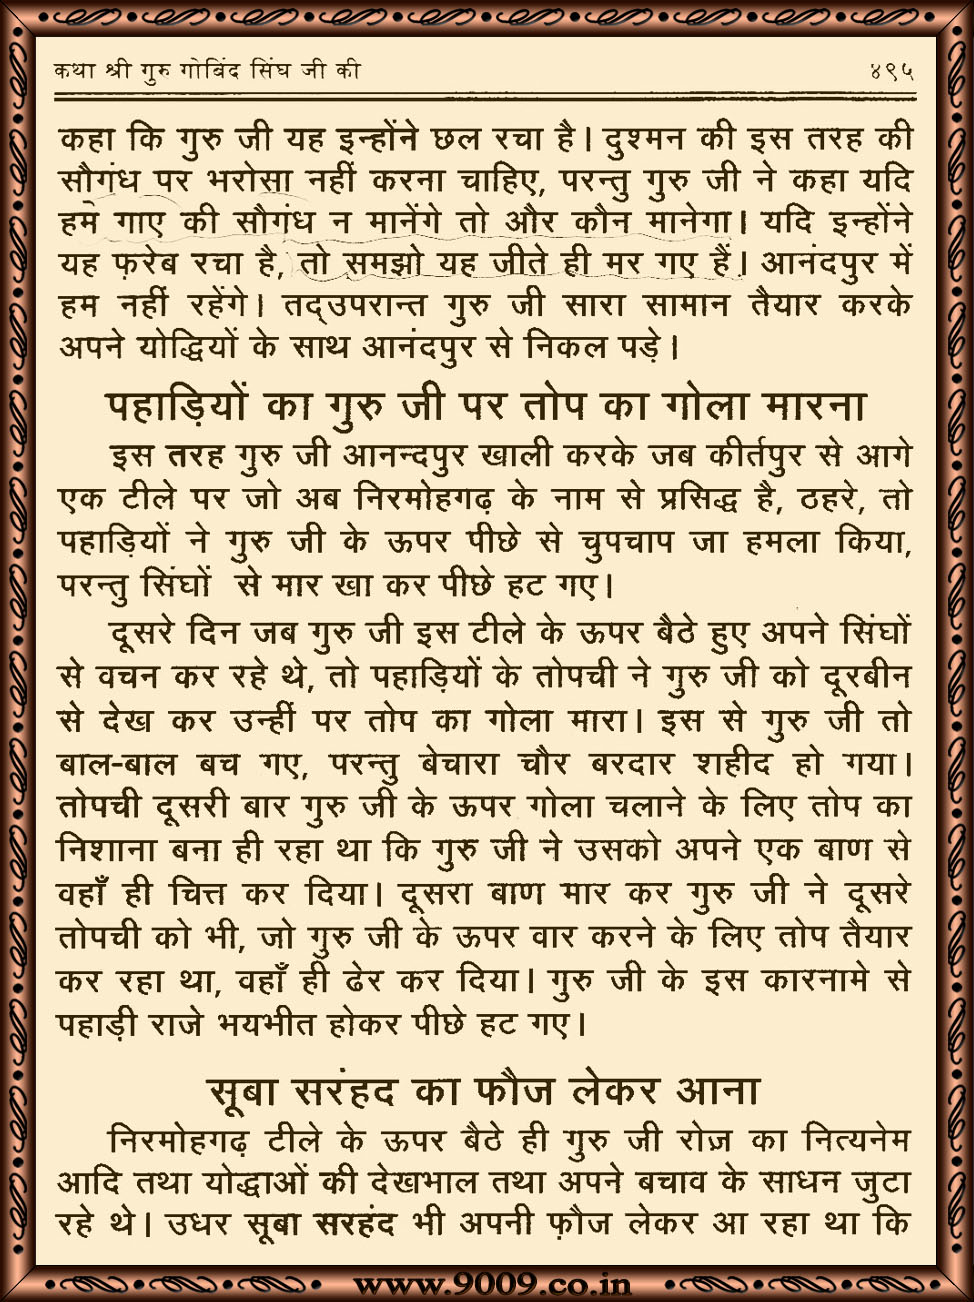 कथा श्री गुरु गोबिंद सिंघ जी की ४९५
कहा कि गुरु जी यह इन्होंने छल रचा है। दुश्मन की इस तरह की
सौगंध पर भरोसा नहीं करना चाहिए, परन्तु गुरु जी ने कहा यदि
हमे गाए की सौगंध न मानेंगे तो और कौन मानेगा। यदि इन्होंने
यह फ़रेब रचा है, तो समझो यह जीते ही मर गए हैं। आनंदपुर में
हम नहीं रहेंगे। तद्उपरान्त गुरु जी सारा सामान तैयार करके
अपने योद्धियों के साथ आनंदपुर से निकल पड़े।
पहाड़ियों का गुरु जी पर तोप का गोला मारना
इस तरह गुरु जी आनन्दपुर खाली करके जब कीर्तपुर से आगे
एक टीले पर जो अब निरमोहगढ़ के नाम से प्रसिद्ध है, ठहरे, तो
पहाड़ियों ने गुरु जी के ऊपर पीछे से चुपचाप जा हमला किया,
परन्तु सिंघों से मार खा कर पीछे हट गए।
दूसरे दिन जब गुरु जी इस टीले के ऊपर बैठे हुए अपने सिंघों
से वचन कर रहे थे, तो पहाड़ियों के तोपची ने गुरु जी को दूरबीन
से देख कर उन्हीं पर तोप का गोला मारा। इस से गुरु जी तो
बाल-बाल बच गए, परन्तु बेचारा चौर बरदार शहीद हो गया।
तोपची दूसरी बार गुरु जी के ऊपर गोला चलाने के लिए तोप का
निशाना बना ही रहा था कि गुरु जी ने उसको अपने एक बाण से
वहाँ ही चित्त कर दिया। दूसरा बाण मार कर गुरु जी ने दूसरे
तोपची को भी, जो गुरु जी के ऊपर वार करने के लिए तोप तैयार
कर रहा था, वहाँ ही ढेर कर दिया। गुरु जी के इस कारनामे से
पहाड़ी राजे भयभीत होकर पीछे हट गए।
सूबा सरंहद का फौज लेकर आना
निरमोहगढ़ टीले के ऊपर बैठे ही गुरु जी रोज़ का नित्यनेम
आदि तथा योद्धाओं की देखभाल तथा अपने बचाव के साधन जुटा
रहे थे। उधर सूबा सरहंद भी अपनी फ़ौज लेकर आ रहा था कि
www.9009.co.in